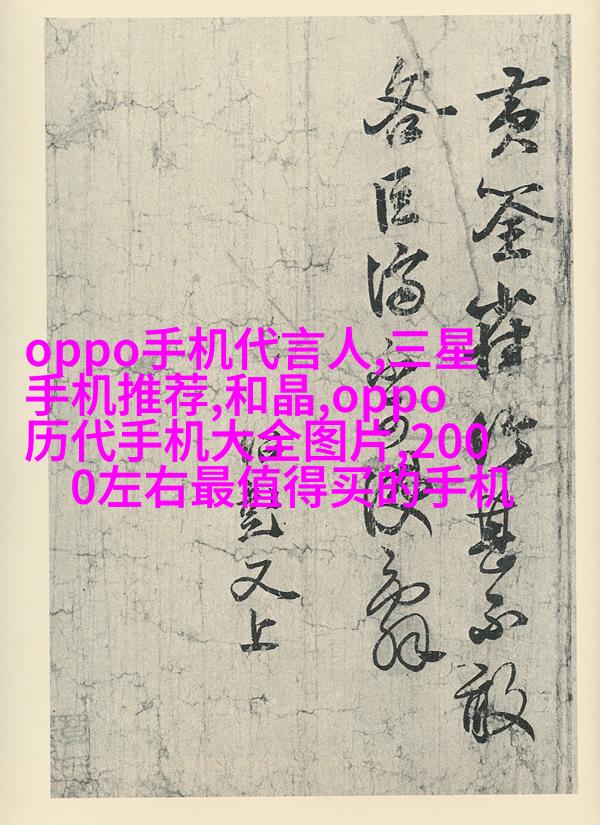 oppo手机代言人,三星
手机推荐,和晶,oppo
历代手机大全图片,200
0左右最值得买的手机
黄筌雀竹甚不敢
又上